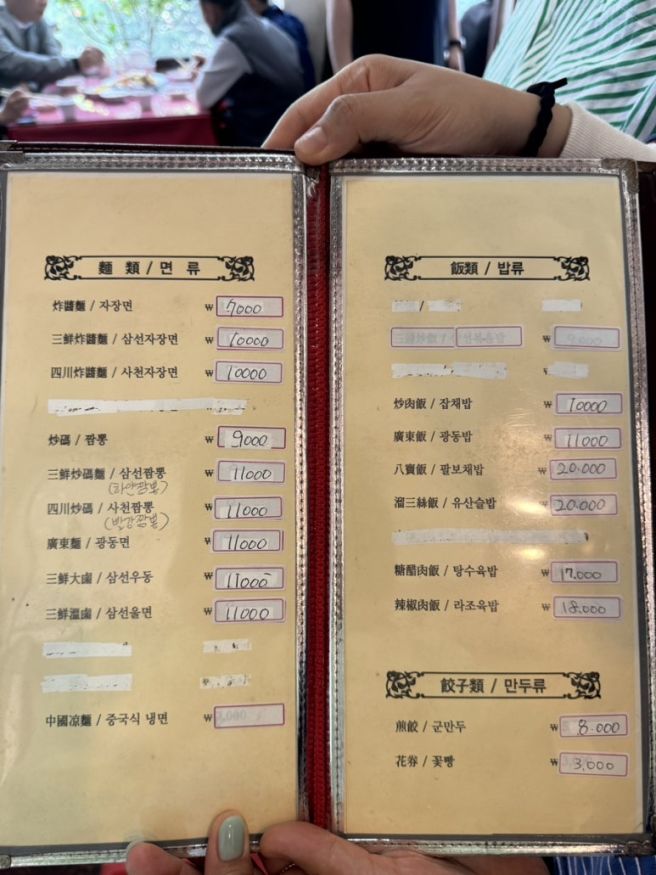 麵 類 / 면 류
炸醬麵 / 자장면 ₩ 7000
三鮮炸醬麵 / 삼선자장면 ₩ 10000
四川炸醬麵 / 사천자장면 ₩ 10000
炒碼 / 짬뽕 ₩ 9000
三鮮炒碼麵 / 삼선짬뽕 ₩ 11000
(하얀짬뽕)
四川炒碼 / 사천짬뽕 ₩ 11000
(빨강짬뽕)
廣東麵 / 광동면 ₩ 11000
三鮮大鹵 / 삼선우동 ₩ 11000
三鮮溫鹵 / 삼선울면 ₩ 11000
中國凉麵 / 중국식 냉면 ₩
飯類 / 밥류
炒肉飯 / 잡채밥 ₩ 10000
廣東飯 / 광동밥 ₩ 11000
八寶飯 / 팔보채밥 ₩ 20.000
溜三絲飯 / 유산슬밥 ₩ 20.000
糖醋肉飯 / 탕수육밥 ₩ 17.000
辣椒肉飯 / 라조육밥 ₩ 18.000
餃子類 / 만두류
煎餃 / 군만두 ₩ 8.000
花券 / 꽃빵 ₩ 3,000